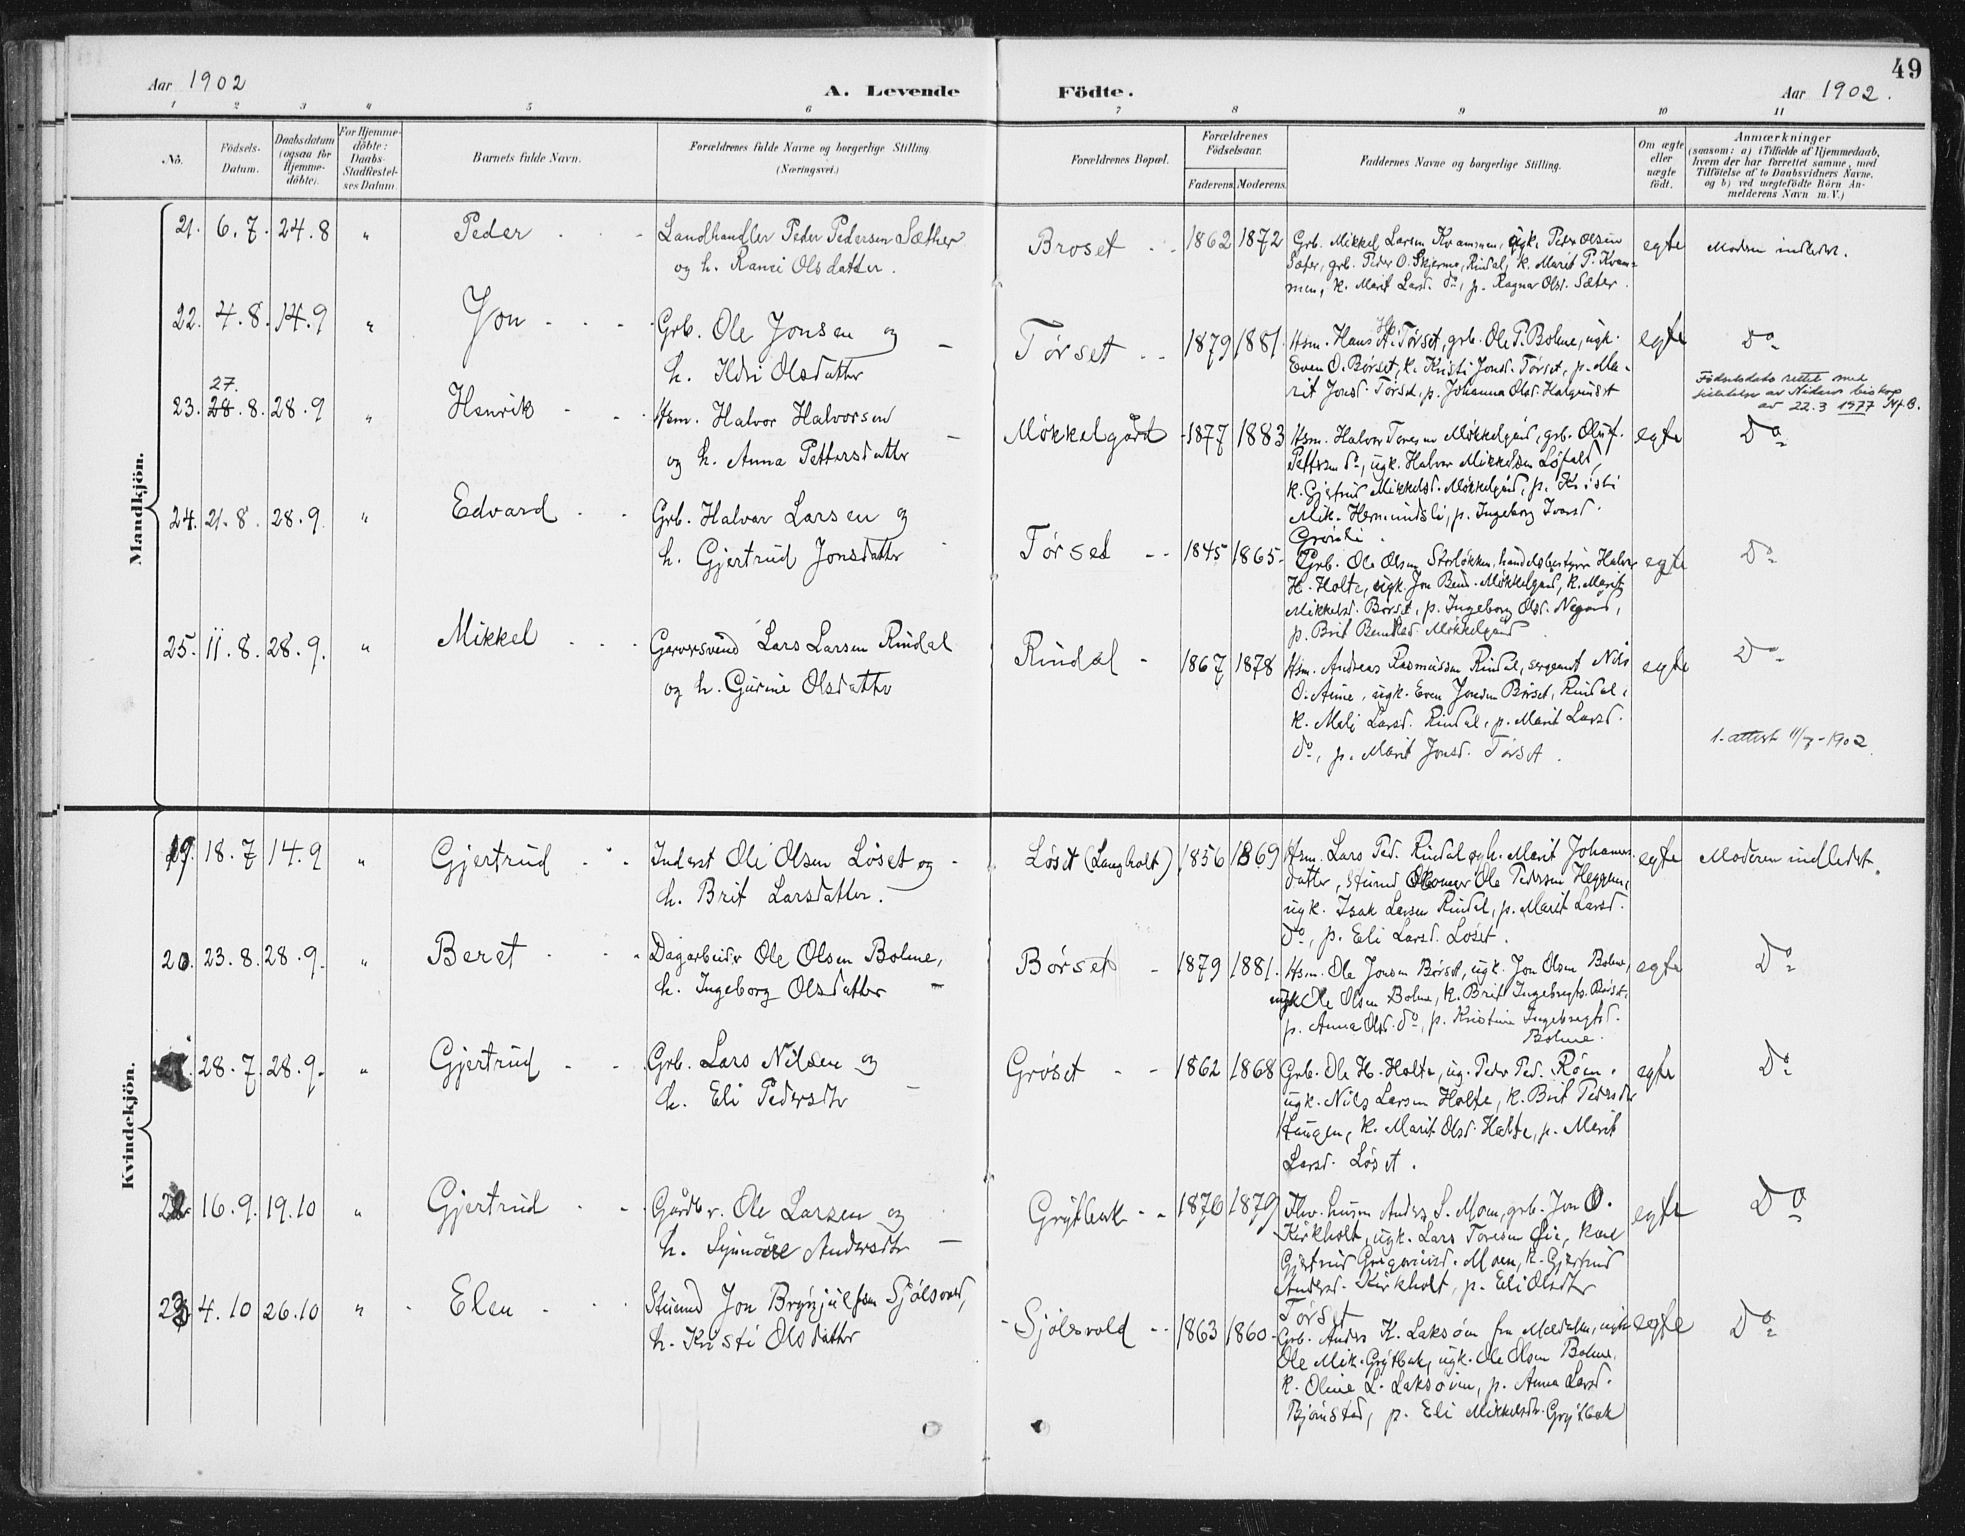 49
Aar 1902
A. Levende
Födte.
Aar 1902.
1 2 3 4 5 6 7 8 9 10 11
No.
Födsels-
Datum.
Daabsdatum
(ogsaa for
Hjemme-
döbte).
For Hjemme-
döbte:
Daabs-
Stadfæstel-
ses Datum.
Barnets fulde Navn.
Forældrenes fulde Navne og borgerlige Stilling.
(Næringsvei.)
Forældrenes Bopæl.
Forældrenes
Födselsaar.
Faderens. Moderens.
Faddernes Navne og borgerlige Stilling.
Om ægte
eller
uægte
födt.
Anmærkninger
(saasom: a) i Tilfælde af Hjemmedaab,
hvem der har forrettet samme, med
Tilföielse af to Daabsvidners Navne,
og b) ved uægtefödte Börn An-
melderens Navn m. V.)
Mandkjön.
21. 6.7. 24.8 " Peder
Landhandler Peder Pedersen Sæther
og h. Ranei Olsdatter.
Broset 1862 1872
Grb. Mikkel Larsen Kvammen, ugk. Peder Olsen
Sæter, grb. Peder O. Skjermo, Rindal, k. Marit P. Kvam-
men, k. Marit Larsd. do, p. Ragna Olsd. Sæter.
egte Moderen indledet.
22. 4.8. 14.9 " Jon
Grb. Ole Jonsen og
h. Ildri Olsdatter
Tørset 1879 1881.
Hsm. Hans H. Tørset, grb. Ole P. Bolme, ugk.
Even O. Børset, k. Kristi Jonsd. Tørset, p. Ma-
rit Jonsd. Tørset, p. Johanna Olsd. Halgunset
egte Do
27.
23. 28.8. 28.9 " Henrik
Hsm. Halvor Halvorsen
og h. Anna Pettersdatter
Møkkelgård 1877 1883
Hsm. Halvor Toresen Møkkelgård, grb. Oluf
Pettersen do, ugk. Halvor Mikkelsen Løfald,
k. Gjertrud Mikkelsd. Møkkelgård, p. Kristi
Mik. Hermundsli, p. Ingeborg Ivarsd.
egte Do
Fødselsdato rettet med
av Nidaros biskop
av 22.3 1977
24. 21.8. 28.9. " Edvard
Grb. Halvor Larsen og
h. Gjertrud Jonsdatter
Tørset 1845 1865
Grb. Ole Olsen Storløkken, handelsbestyrer Halvor
H. Holte, ugk. Jon Bend. Møkkelgård, k. Marit
Mikkelsd. Børset, p. Ingeborg Olsd. Negård,
p. Brit Bendiksd. Møkkelgård
egte Do
25. 11.8. 28.9. " Mikkel
Garversvend Lars Larsen Rindal
og h. Gurine Olsdatter
Rindal 1867 1878
Hsm. Andreas Rasmussen Rindal, sergeant Nils
O. Aune, ugk. Even Jonsen Børset, Rindal,
k. Mali Larsd. Rindal, p. Marit Larsd.
do, p. Marit Jonsd. Tørset.
egte Do
1. attest 11/7-1902
Kvindekjön.
19. 18.7 14.9 " Gjertrud
Inderst Ole Olsen Løset og
h. Brit Larsdatter.
Løset (Langholt) 1856 1869
Hsm. Lars Ped. Rindal og h. Marit Johannes-
datter, Ole Pedersen Heggem,
ugk. Isak Larsen Rindal, p. Marit Larsd.
do, p. Eli Larsd. Løset.
egte Moderen indledet.
20. 23.8. 28.9. " Beret
Dagarbeider Ole Olsen Bolme,
h. Ingeborg Olsdatter
Børset 1879 1881.
Hsm. Ole Jonsen Børset, ugk. Jon Olsen Bolme,
ugk. Ole Olsen Bolme, k. Brit Ingebregts. Børset,
p. Anna Olsd. do, p. Kristine Ingebregtsd.
Bolme.
egte Do
21. 28.7. 28.9. " Gjertrud
Grb. Lars Nilsen og
h. Eli Pedersdtr
Grøset 1862 1868
Grb. Ole H. Holte, ug. Peder Ped. Røen,
ugk. Nils Larsen Holte, k. Brit Pedersdtr
Haugen, k. Marit Olsd. Holte, p. Marit
Larsd. Løset.
egte Do
22. 16.9. 19.10 " Gjertrud
Gårdbr. Ole Larsen og
h. Synnøve Andersdtr
Grytbak 1876 1879
Anders S. Moen, grb. Jon O.
Kirkholt, ugk. Lars Toresen Øie, kone
Gjertrud Moen, k. Gjertrud
Andersd. Kirkholt, p. Eli Olsdtr
Tørset
egte Do
23 4.10 26.10 " Elen
Jon Brynjulfsen Sjølsvold,
h. Kristi Olsdatter
Sjølsvold 1863 1860
Grb. Anders K. Laksøien fra Meldalen, ugk
Ole Mik. Grytbak, ugk. Ole Olsen Bolme,
k. Oline L. Laksøien, p. Anna Larsd.
Bjørnstad, p. Eli Mikkelsdtr. Grytbak
egte Do